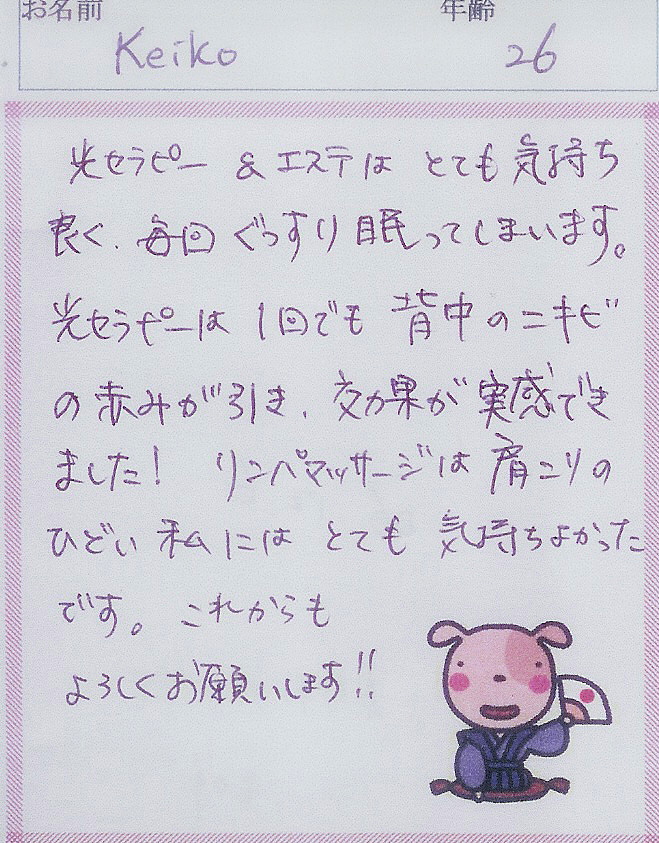 お名前 年齢
Keiko 26
光セラピー & エステは とても 気持ち
良く、毎回 ぐっすり 眠ってしまいます。
光セラピーは 1回でも 背中のニキビ
の赤みが引き、効果が実感でき
ました! リンパマッサージは 肩こりの
ひどい 私には とても 気持ちよかった
です。 これからも
よろしくお願いします!!